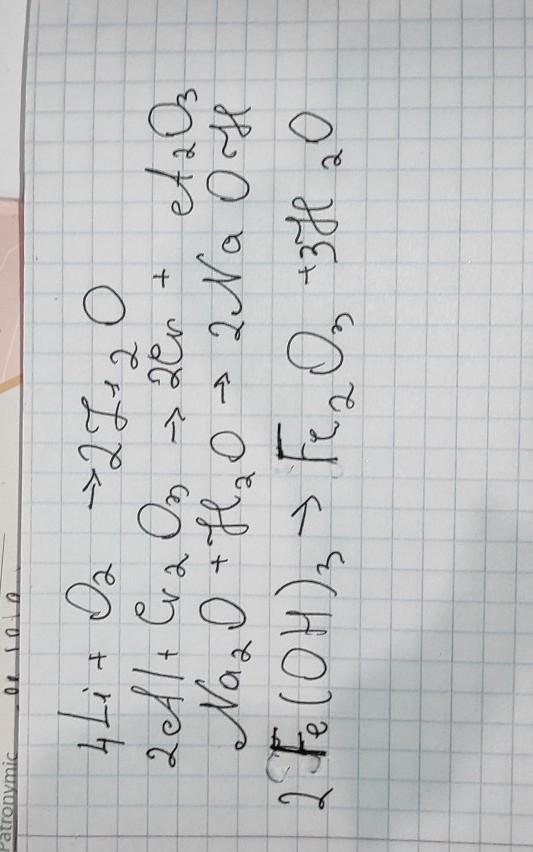 Patronymic
4Li + O2 → 2Li2O
2Al + Cr2O3 → 2Cr + A2O3
Na2O + H2O → 2NaOH
2Fe(OH)3 → Fe2O3 + 3H2O